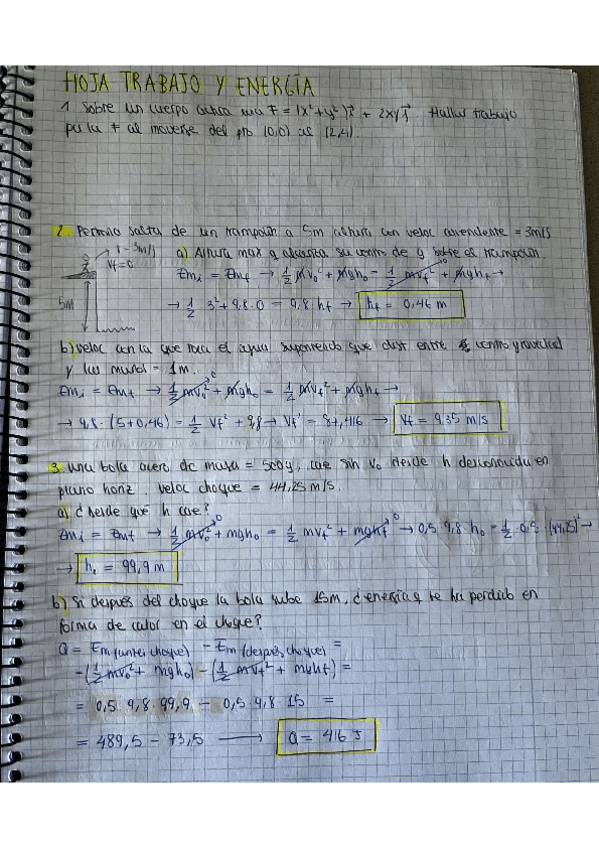 HOJA TRABAJO Y ENERGÍA
1 Sobre un cuerpo actua una F = (x²+y²)i + 2xyj. Hallar trabajo
por la F al moverse del pto (0,0) al (2,4).
2. Persona salta de un trampolin a 5m altura con veloc ascendente = 3m/s
Vf = 0
5M
a) Altura max q alcanza su centro de g sobre el trampolin.
Emi = Emf → 1/2 mv₀² + mgh₀ = 1/2 mvf² + mghf →
→ 1/2 3² + 9,8·0 = 9,8·hf → hf = 0,46 m
b) veloc con la que toca el agua suponiendo que dist entre centro gravedad
y las manos = 1m.
Emi = Emf → 1/2 mv₀² + mgh₀ = 1/2 mvf² + mghf →
→ 9,8·(5+0,46) = 1/2 Vf² + 9,8 → Vf² = 87,416 → Vf = 9,35 m/s
3. una bola acero de masa = 500g, cae sin v₀ desde h desconocida en
plano horiz. veloc choque = 44,25 m/s.
a) ¿desde que h cae?
Emi = Emf → 1/2 mv₀² + mgh₀ = 1/2 mvf² + mghf → 0,5·9,8·h₀ = 1/2·0,5·(44,25)² →
→ h₀ = 99,9 m
b) Si después del choque la bola sube 15m, ¿energía q se ha perdido en
forma de calor en el choque?
Q = Em (antes choque) - Em (después choque) =
-(1/2 mv₀² + mgh₀) - (1/2 mvf² + mghf) =
= 0,5·9,8·99,9 - 0,5·9,8·15 =
= 489,5 - 73,5 → Q = 416 J